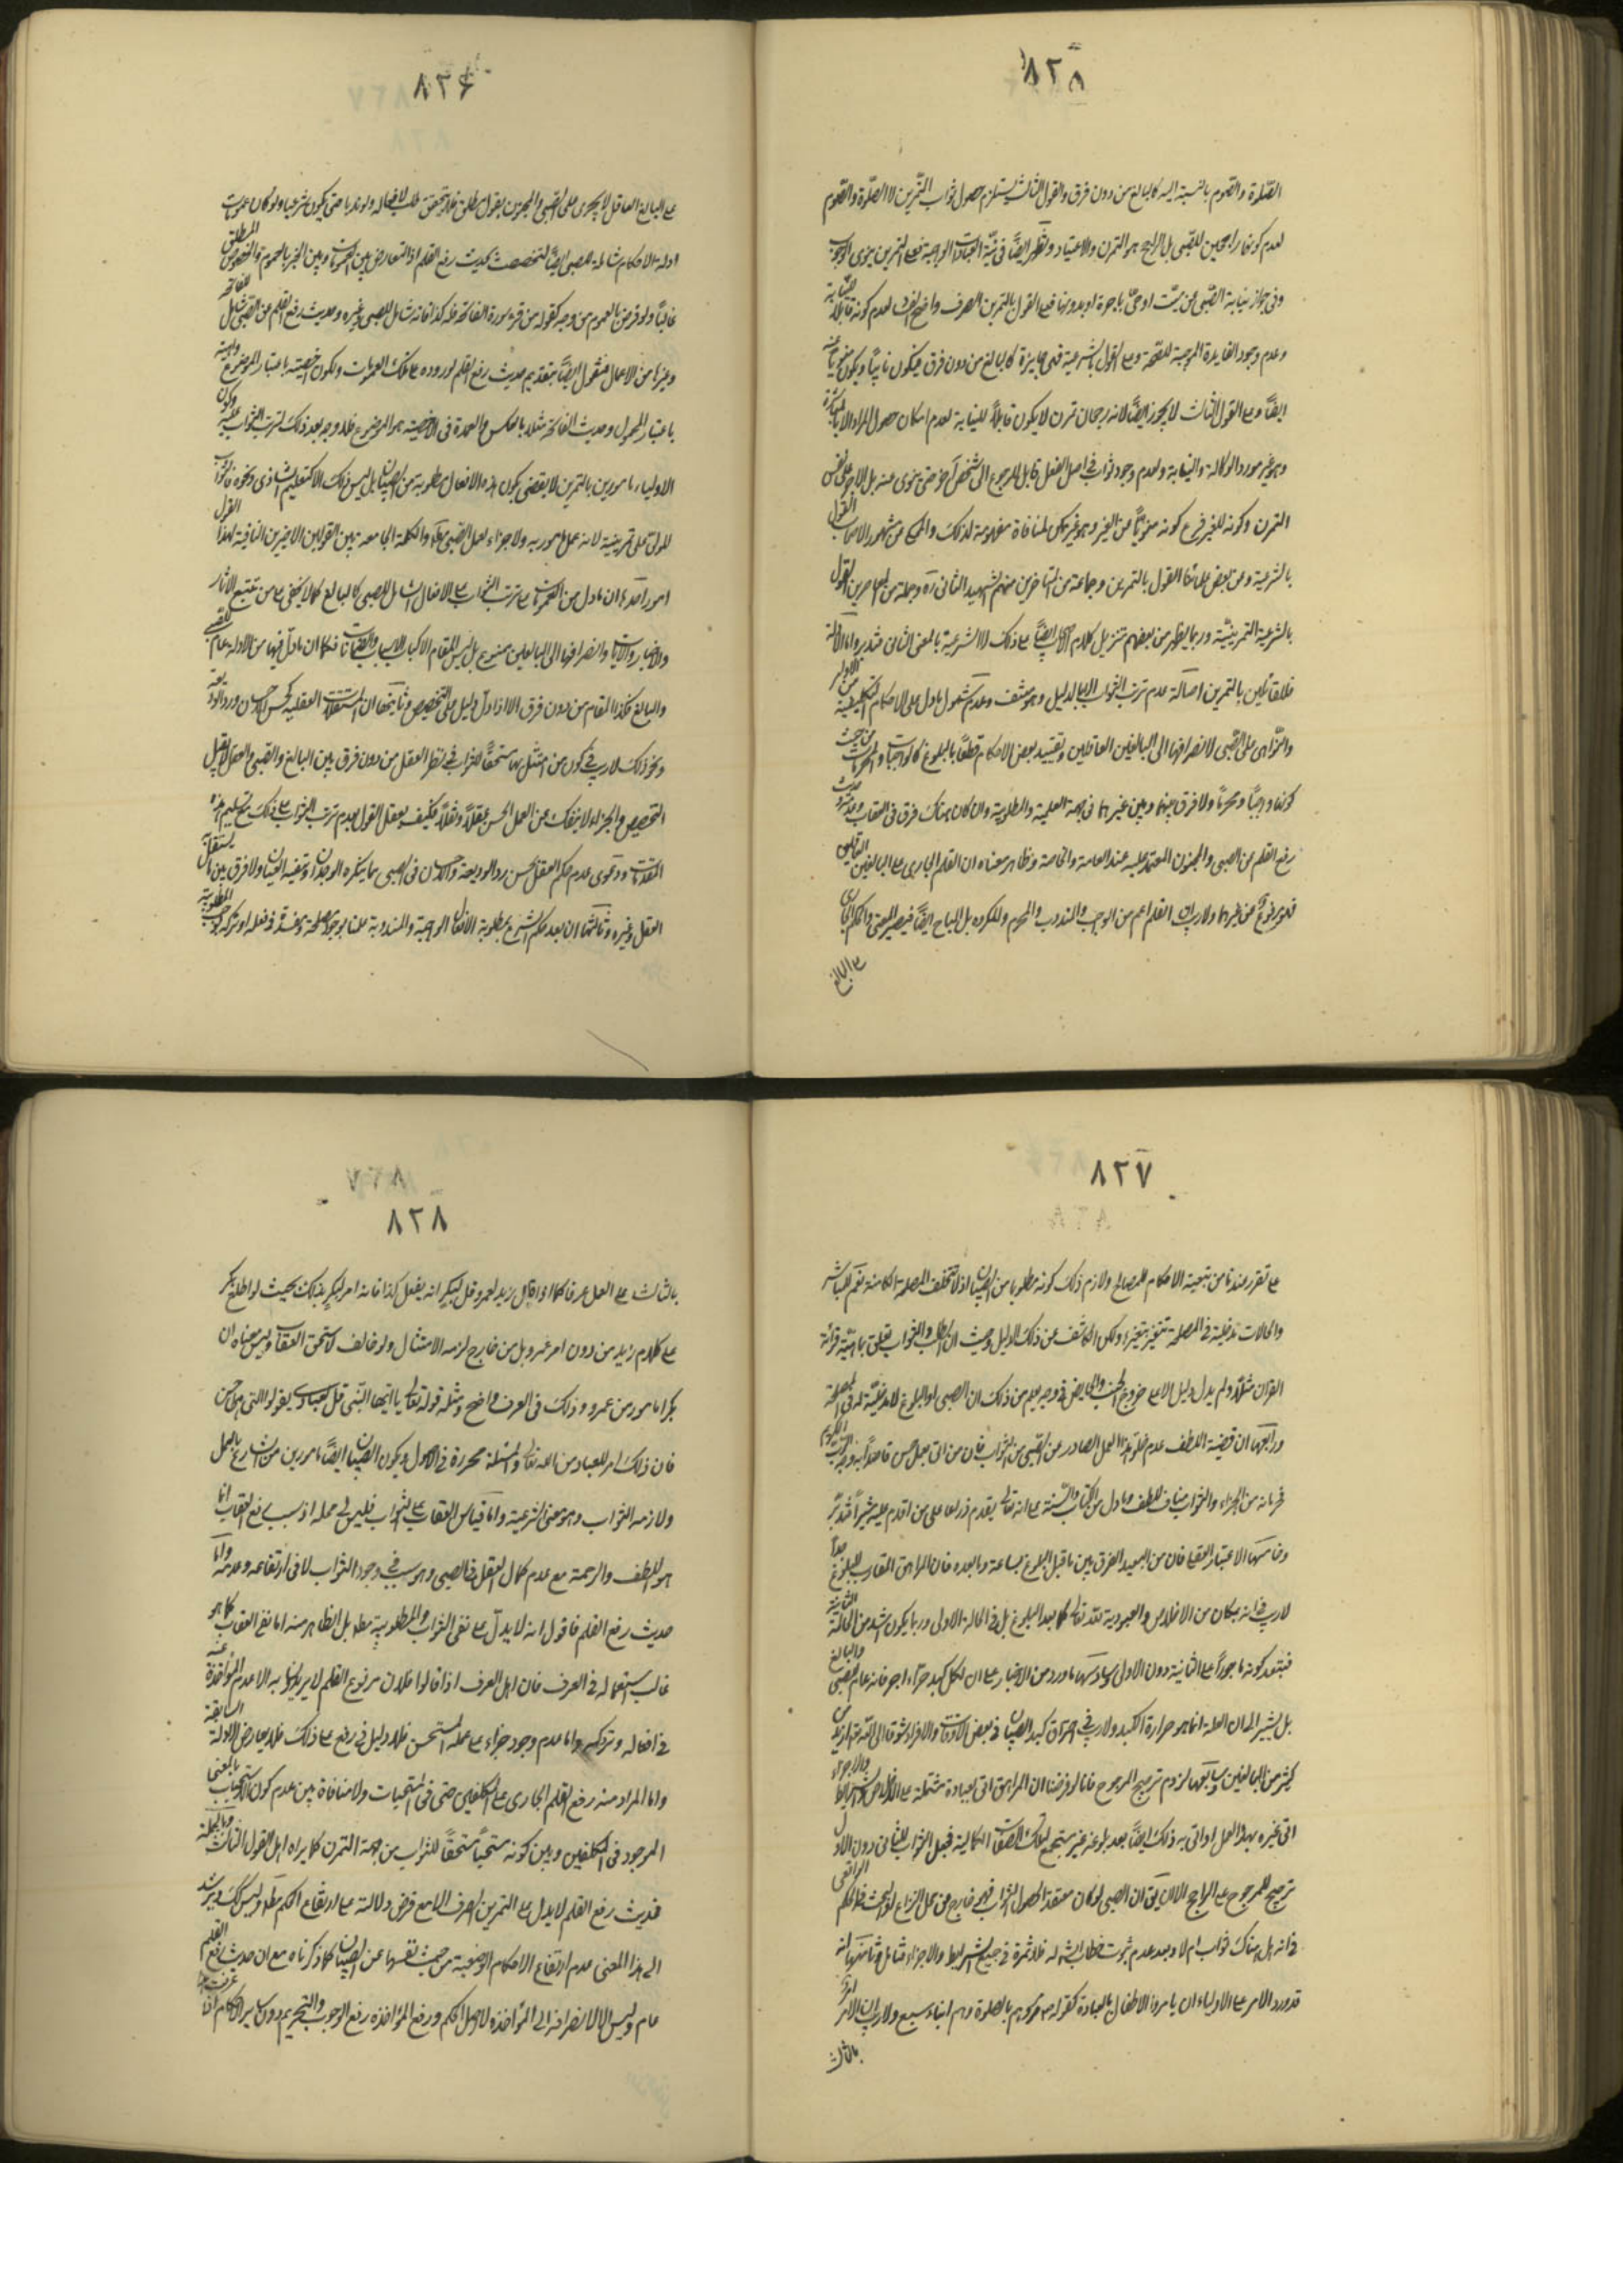 ٨٢٥
الصلوة والصوم بالنسبة اليه كالبالغ من دون فرق والقول الثالث يستلزم حصول ثواب التمرين لا الصلوة والصوم
لعدم كونها راجحين للصبى بل الراجح هو التمرن والاعتياد وتظهر ايضاً فى نية العبادات الواجبة فعلى التمرين ينوى الوجوب
وفى جواز نيابة الصبى عن ميت او حى باجرة او بدونها فعلى القول بالتمرين الصرف واضح لعدم كونه قابلاً للنيابة
وعدم وجود الفايدة الموجبة للصحة وعلى القول بالشرعية فهى جايزة كالبالغ من دون فرق فيكون نايباً ويكون منوياً عنه
ايضاً وعلى القول الثالث لا يجوز ايضاً لانه رجحان تمرن لا يكون قابلاً للنيابة لعدم امكان حصول المراد الا بالمباشرة
وهو غير مورد الوكالة والنيابة ولعدم وجود ثواب فى اصل الفعل قابل للرجوع الى شخص آخر حتى ينوى عنه بل الاجر على نفس
التمرن وكونه للغير فرع كونه منوياً عن الغير وهو غير ممكن لمنافاة مفهومه لذلك والمحكى عن مشهور الاصحاب القول
بالشرعية وعن بعض علمائنا القول بالتمرين وجماعة من المتاخرين منهم الشهيد الثانى ره وجملة من المعاصرين القول
بالشرعية التمرينية وربما يظهر من بعضهم تنزيل كلام الاصحاب ايضاً على ذلك لا الشرعية بالمعنى الثانى فتدبر واما الادلة
فللقائلين بالتمرين اصالة عدم ترتب الثواب الا بالدليل وهو منتف وعدم شمول ما دل على الاحكام التكليفية من الاوامر
والنواهى على الصبى لانصرافها الى البالغين العاقلين وتقييد بعض الاحكام قطعاً بالبلوغ كالواجبات والمحرمات من حيث
كونها واجباً ومحرماً ولا فرق بينهما وبين غيرهما فى جهة العلمية والطلوبية وان كان هناك فرق فى العقاب وعدمه وحديث
رفع القلم عن الصبى والمجنون المعتمد عليه عند العامة والخاصة وظاهر معناه ان القلم الجارى على البالغين العاقلين
فهو مرفوع عن غيرهما ولا ريب ان القلم اعم من الوجوب والمندوب والمحرم والمكروه بل المباح ايضاً فيصير المعنى والحكم الجارى
على البالغ
٨٢۶
على البالغ العاقل لا يجرى على الصبى والمجنون بقول مطلق فلا يتحقق طلب لافعاله ولو ندبا حتى يكون شرعيا ولو كان عمومات
ادلة الاحكام شاملة للصبى ايضاً لتخصصت بحديث رفع القلم اذ التعارض بين العمومات وبين الخبر بالعموم والخصوص المطلق
غالباً ولو فرض بالعموم من وجه كقوله من قرء سورة الفاتحة فله كذا فانه شامل للصبى وغيره وحديث رفع القلم عن الصبى شامل للفاتحة
وغيرها من الاعمال فنقول ايضاً بتقديم حديث رفع القلم لوروده على تلك العمومات ولكون اخصيته باعتبار الموضوع
باعتبار المحمول وحديث الفاتحة مثلا بالعكس والعمدة فى الاخصية هو الموضوع فلا وجه بعد ذلك لترتب الثواب عليه وكون
الاولياء مامورين بالتمرين لا يقتضى كون هذه الافعال مطلوبة من الصبيان بل ليس ذلك الا كتعليم
للولى على تمرينه لانه عمل مامور به ولا جزاء لعمل الصبى مط والكلمة الجامعة بين القولين الاخيرين النافية لهذا القول
امور احدها ان ما دل من العمومات على ترتب الثواب على الافعال شامل للصبى كالبالغ كما لا يخفى على من تتبع الآثار
والاخبار والايات وانصرافها الى البالغين ممنوع
والبالغ فكذا المقام من دون فرق الا اذا دل دليل على التخصيص وثانيها ان المستقلات العقلية كحسن الاحسان ورد الوديعة
ونحو ذلك لا ريب فى كون من امتثل بها مستحقاً للثواب فى نظر العقل من دون فرق بين البالغ والصبى والعقل لا يقبل
التخصيص والجزاء لا ينفك عن العمل الحسن عقلاً ونقلاً فكيف يعقل القول بعدم ترتب الثواب على ذلك مع تسليم هذه
المقدمات ودعوى عدم حكم العقل بحسن رد الوديعة والاحسان فى الصبى مما ينكره الوجدان وتنفيه العيان ولا فرق بين مستقلات
العقل وغيره وثالثها ان بعد حكم الشرع بمطلوبية الافعال الواجبة والمندوبة علمنا بوجود مصلحة ومفسدة فى فعله او تركه
٨٢٧
على تقرر عندنا من تبعية الاحكام للمصالح ولازم ذلك كونه مطلوبا من الصبيان اذ لا تتخلف المصلحة الكامنة نعم للمباشر
والحالات مدخلية فى المصلحة تتغير بتغيرها ولكن الكاشف عن ذلك الدليل وحيث ان الطلب والثواب تعلق بماهية قرائة
القران مثلاً ولم يدل دليل الا على خروج الجنب والحايض فى وجه يعلم من ذلك ان الصبى او البلوغ لا مدخلية له فى المصلحة
ورابعها ان قضية اللطف عدم خلو هذا العمل الصادر عن الصبى من الثواب فان من اتى بعمل حسن
فحرمانه من الجزاء والثواب مناف للطف وما دل من الكتاب والسنة على انه تعالى يقدم ذراعا على من اقدم عليه شبراً فتدبر
وخامسها الاعتبار العقلى فان من البعيد الفرق بين ما قبل البلوغ بساعة وما بعده فان المراهق المقارب للبلوغ جداً
لا ريب فى انه بمكان من الاخلاص والعبودية لله تعالى كما بعد البلوغ بل فى الحالة الاولى وربما يكون اشد من الحالة الثانية
فيبعد كونه ماجوراً على الثانية دون الاولى وسادسها ما ورد من الاخبار على ان لكل كبد حراء اجر فانه عام للصبى والبالغ
بل يشير الى ان العلة انما هو حرارة الكبد ولا ريب فى احتراق كبد الصبيان فى بعض الاوقات والافراد شوقا الى الله تعالى ازيد من
كثير من البالغين وسابعها لزوم ترجيح المرجوح فانا لو فرضنا ان المراهق اتى بعبادة مشتملة على الاخلاص والشرايط والاجزاء
اتى غيره بهذا العمل او اتى به ذلك ايضاً بعد بلوغه غير مستجمع لتلك الصفات الكمالية فجعل الثواب للثانى دون الاول
ترجيح للمرجوح على الراجح الا ان يقال ان الصبى لو كان معتقدا لحصول الثواب فهو خارج عن محل النزاع
فى انه هل هناك ثواب ام لا وبعد عدم ثبوت خطاب الشرع له فلا ثمرة فى جميع الشرايط والاجزاء فتامل وثامنها انه
قد ورد الامر على الاولياء ان يامروا الاطفال بالعبادة كقوله مروهم بالصلوة وهم ابناء سبع ولا ريب ان الامر
بالثالث
٨٢٨
بالثالث على العمل عرفا كما اذا قال زيد لعمرو قل لبكر ان يفعل كذا فانه امر لبكر بذلك بحيث لو اطلع بكر
على كلام زيد من دون امر عمرو بل من خارج لزمه الامتثال ولو خالف لاستحق العقاب وليس معناه ان
بكرا مامور من عمرو وذلك فى العرف واضح ومثله قوله تعالى يا ايها النبى قل لعبادى يقولوا التى هى احسن
فان ذلك امر للعباد من الله تعالى والمسئلة محررة فى الاصول ويكون الصبيان ايضاً مامورين من الشارع بالعمل
ولازمه الثواب وهو معنى الشرعية واما قياس العقاب على الثواب فليس فى محله اذ سبب رفع العقاب انما
هو اللطف والرحمة مع عدم كمال العقل فى الصبى وهو سبب فى وجود الثواب لا فى ارتفاعه وعدمه واما
حديث رفع القلم فاقول انه لا يدل على نفى الثواب والمطلوبية مط بل الظاهر منه اما نفى العقاب كما هو
غالب استعماله فى العرف فان اهل العرف اذا قالوا فلان مرفوع القلم لا يريدون به الا عدم المؤاخذة عنه
فى افعاله وتروكه واما عدم وجود جزاء على عمله المستحسن فلا دليل فى رفع على ذلك فلا يعارض الادلة السابقة
واما المراد منه رفع القلم الجارى على المكلفين حتى فى المستحبات ولا منافاة بين عدم كون الاستحباب بالمعنى
الموجود فى المكلفين وبين كونه مستحباً مستحقاً للثواب من جهة التمرن كما يراه اهل القول الثالث وبالجملة
فحديث رفع القلم لا يدل على التمرين الصرف الا مع فرض دلالته على ارتفاع الحكم مط وليس كك ويرشد
الى هذا المعنى عدم ارتفاع الاحكام الوضعية من حيث نفسها عن الصبيان كما ذكرناه مع ان حديث رفع القلم
عام وليس الا لانصرافه الى المؤاخذة لا اصل الحكم ورفع المؤاخذه رفع الوجوب والتحريم دون ساير الاحكام